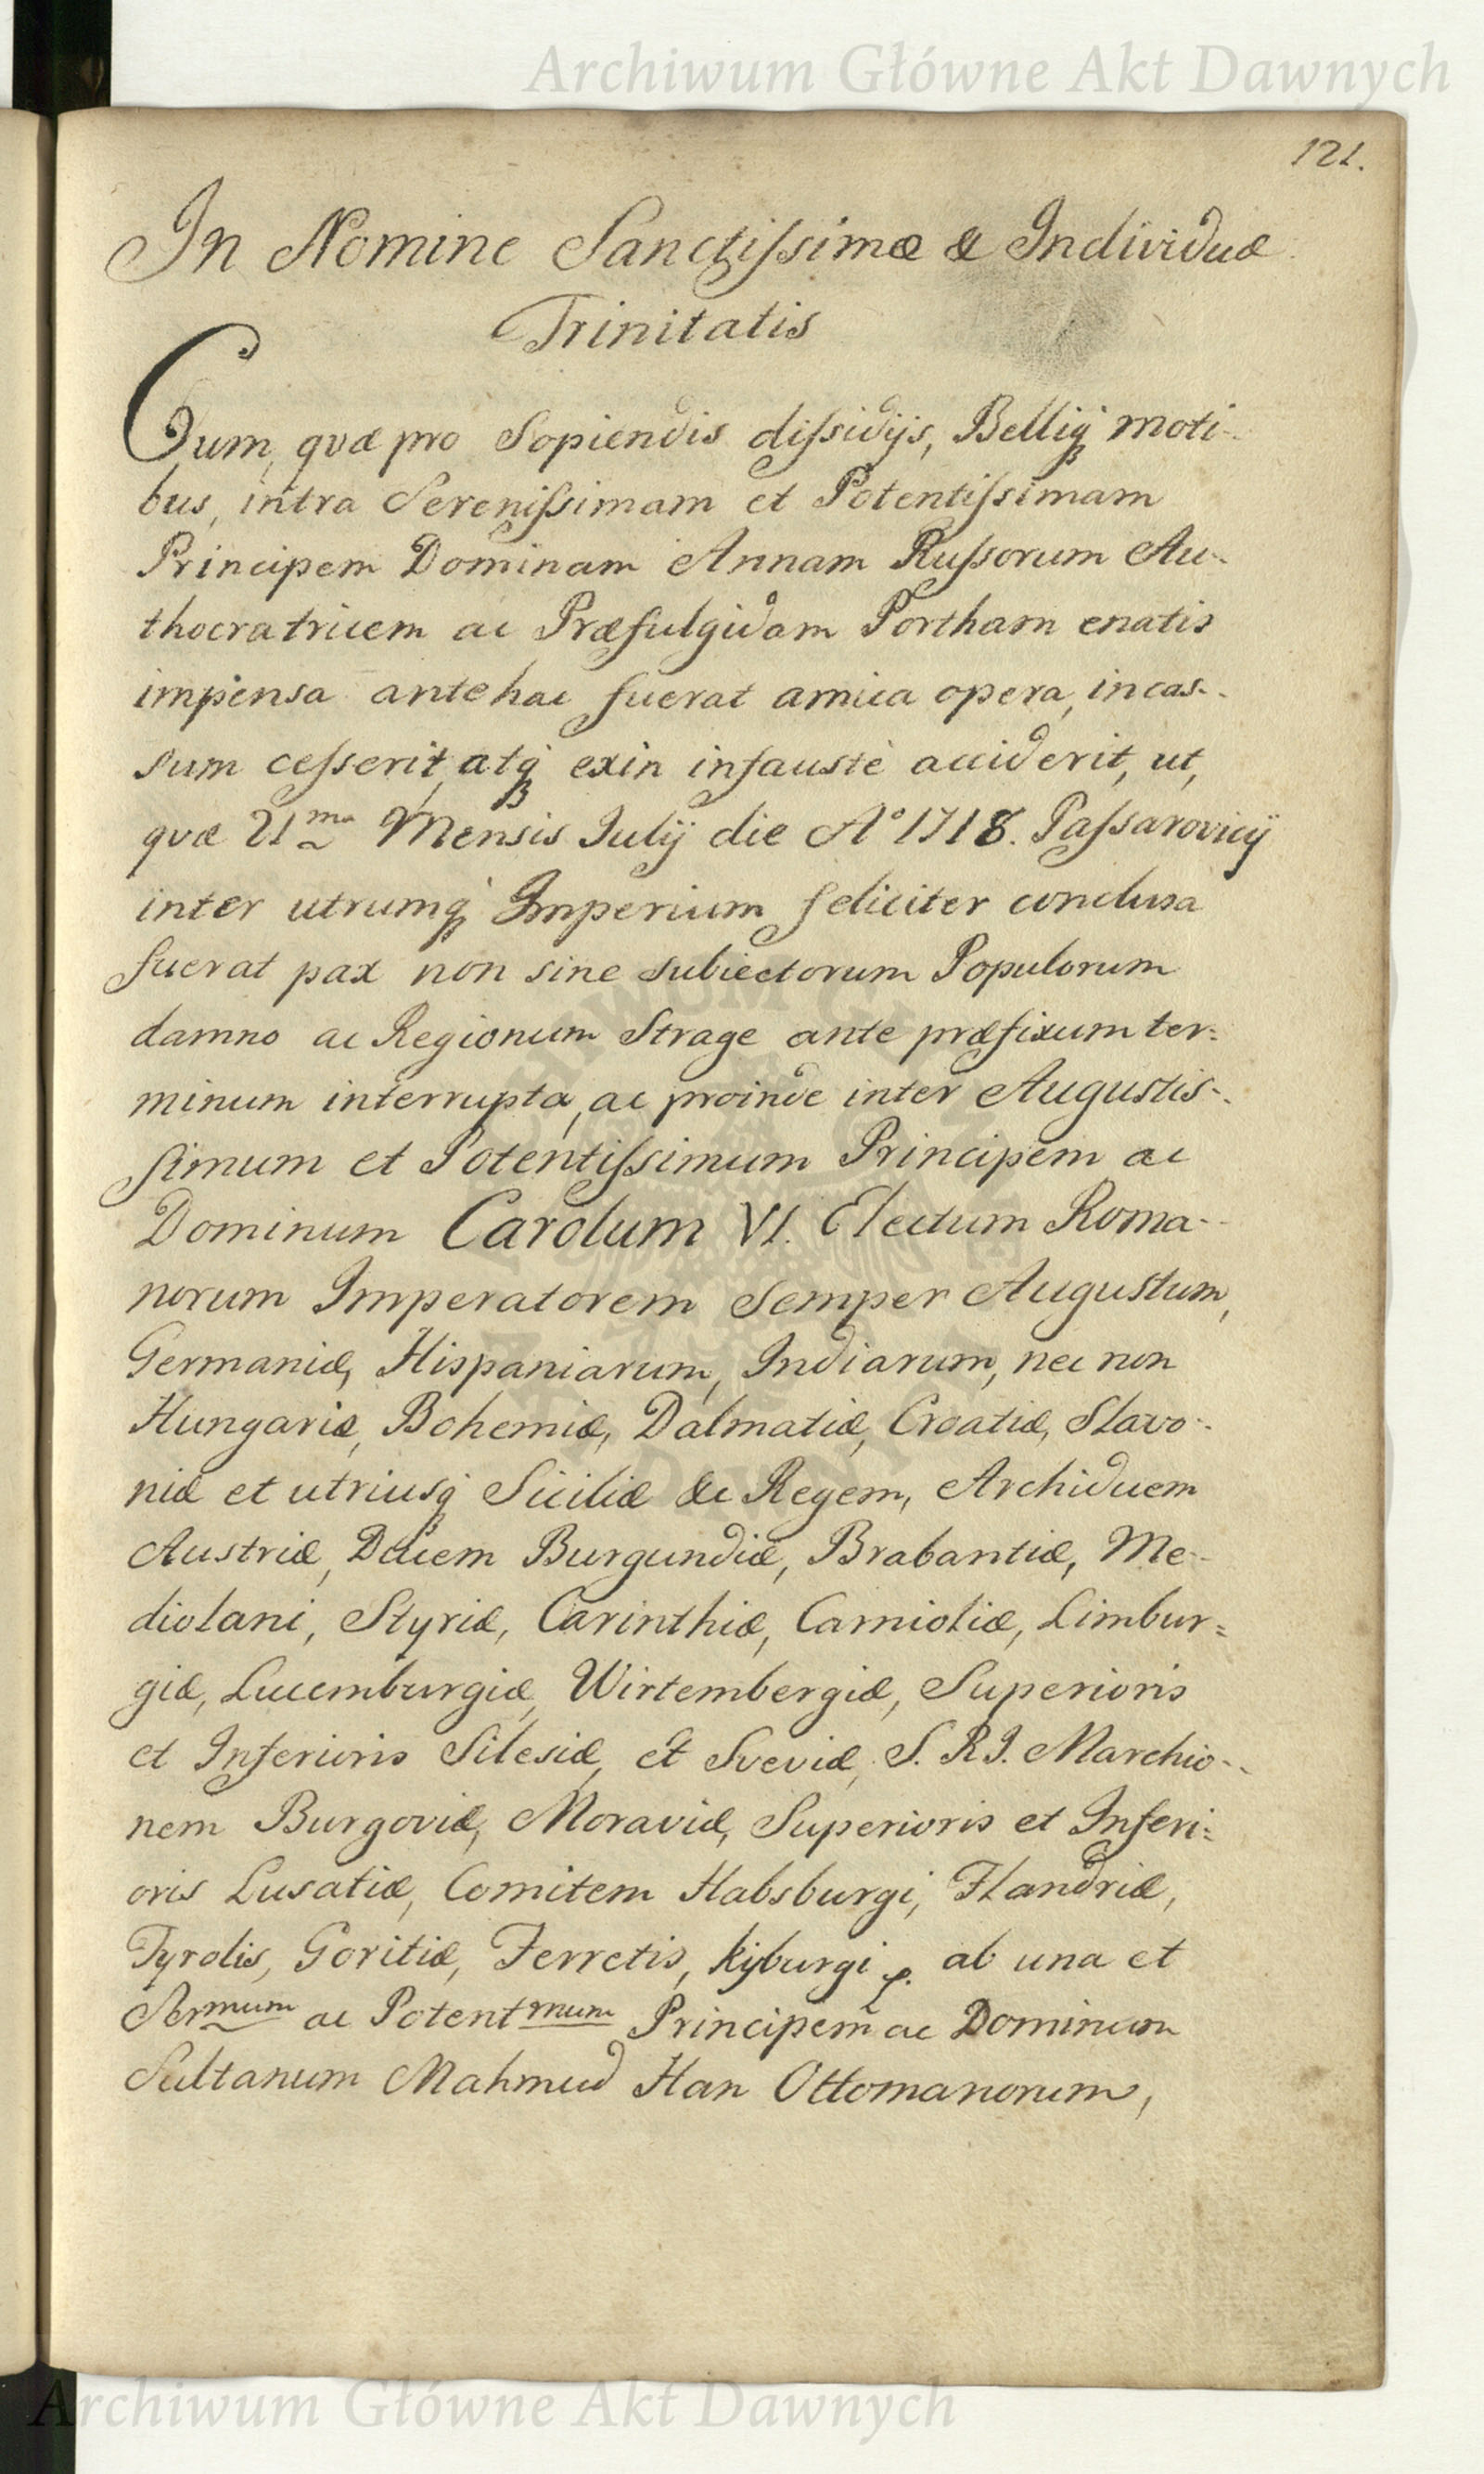 Archiwum Główne Akt Dawnych
121.
In Nomine Sanctissimæ & Individuæ
Trinitatis
Cum, quæ pro Sopiendis dissidijs, Belliq moti-
bus, intra Serenissimam et Potentissimam
Principem Dominam Annam Russorum Au-
thocratricem ac Præfulgidam Portham enatis
impensa antehac fuerat amica opera, incas-
sum cesserit, atq exin infauste acciderit, ut,
quæ 21ma Mensis Julij die Ao 1718. Passarovicij
inter utrumq Imperium feliciter conclusa
fuerat pax non sine subiectorum Populorum
damno ac Regionum Strage ante præfixum ter=
minum interrupta, ac proinde inter Augustis-
simum et Potentissimum Principem ac
Dominum Carolum VI. Electum Roma-
norum Imperatorem Semper Augustum,
Germaniæ, Hispaniarum, Indiarum, nec non
Hungariæ, Bohemiæ, Dalmatiæ, Croatiæ, Slavo-
niæ et utriusq Siciliæ &c Regem, Archiducem
Austriæ, Ducem Burgundiæ, Brabantiæ, Me-
diolani, Styriæ, Carinthiæ, Carnioliæ, Limbur=
giæ, Lucemburgiæ, Wirtembergiæ, Superioris
et Inferioris Silesiæ, et Sveviæ, S. R. I. Marchio-
nem Burgoviæ, Moraviæ, Superioris et Inferi=
oris Lusatiæ, Comitem Habsburgi, Flandriæ,
Tyrolis, Goritiæ, Ferretis, Kijburgi ab una et
Sermum ac Potentmum Principem ac Dominum
Sultanum Mahmud Han Ottomanorum,
Archiwum Główne Akt Dawnych